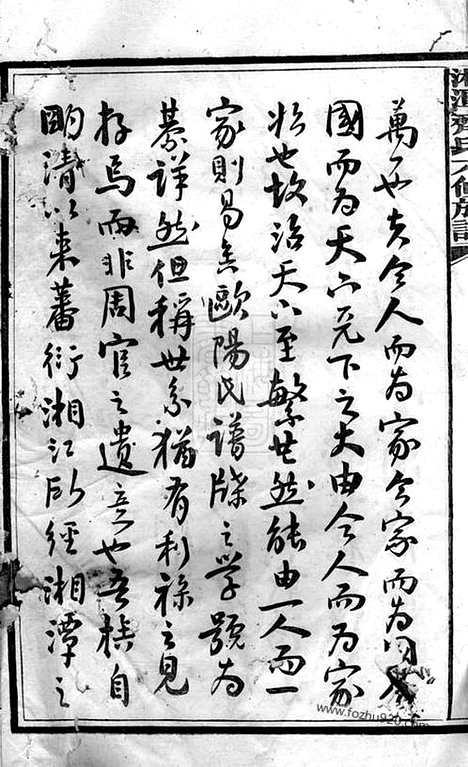 湘潭齊氏修族譜
萬也夫合人而為家合家而為
國而為天下天下之大由合人而為家
始也故治天下至繁其然能由一人而一
家則易矣歐陽氏譜牒之學號為
綦詳然但稱世系猶有利祿之見
存焉而非周官之遺意也吾族自
明清以來蕃衍湘江所經湘潭之
www.fozhu920.com